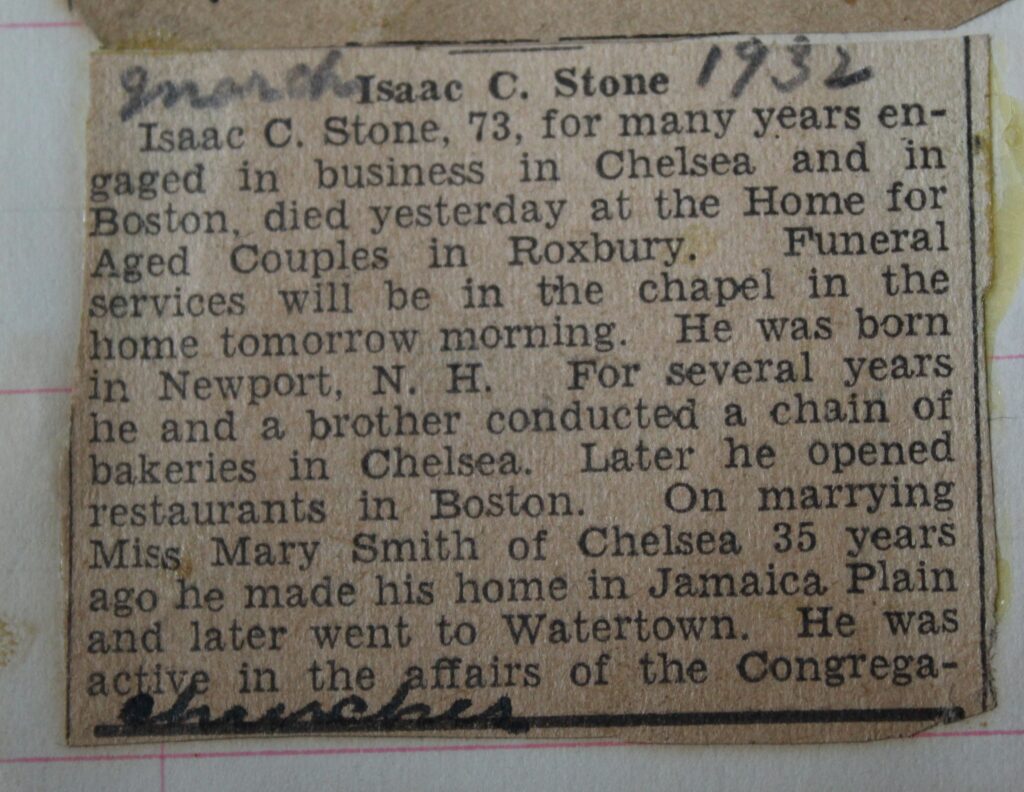 March Isaac C. Stone 1932
Isaac C. Stone, 73, for many years en-
gaged in business in Chelsea and in
Boston, died yesterday at the Home for
Aged Couples in Roxbury. Funeral
services will be in the chapel in the
home tomorrow morning. He was born
in Newport, N. H. For several years
he and a brother conducted a chain of
bakeries in Chelsea. Later he opened
restaurants in Boston. On marrying
Miss Mary Smith of Chelsea 35 years
ago he made his home in Jamaica Plain
and later went to Watertown. He was
active in the affairs of the Congrega-
churches